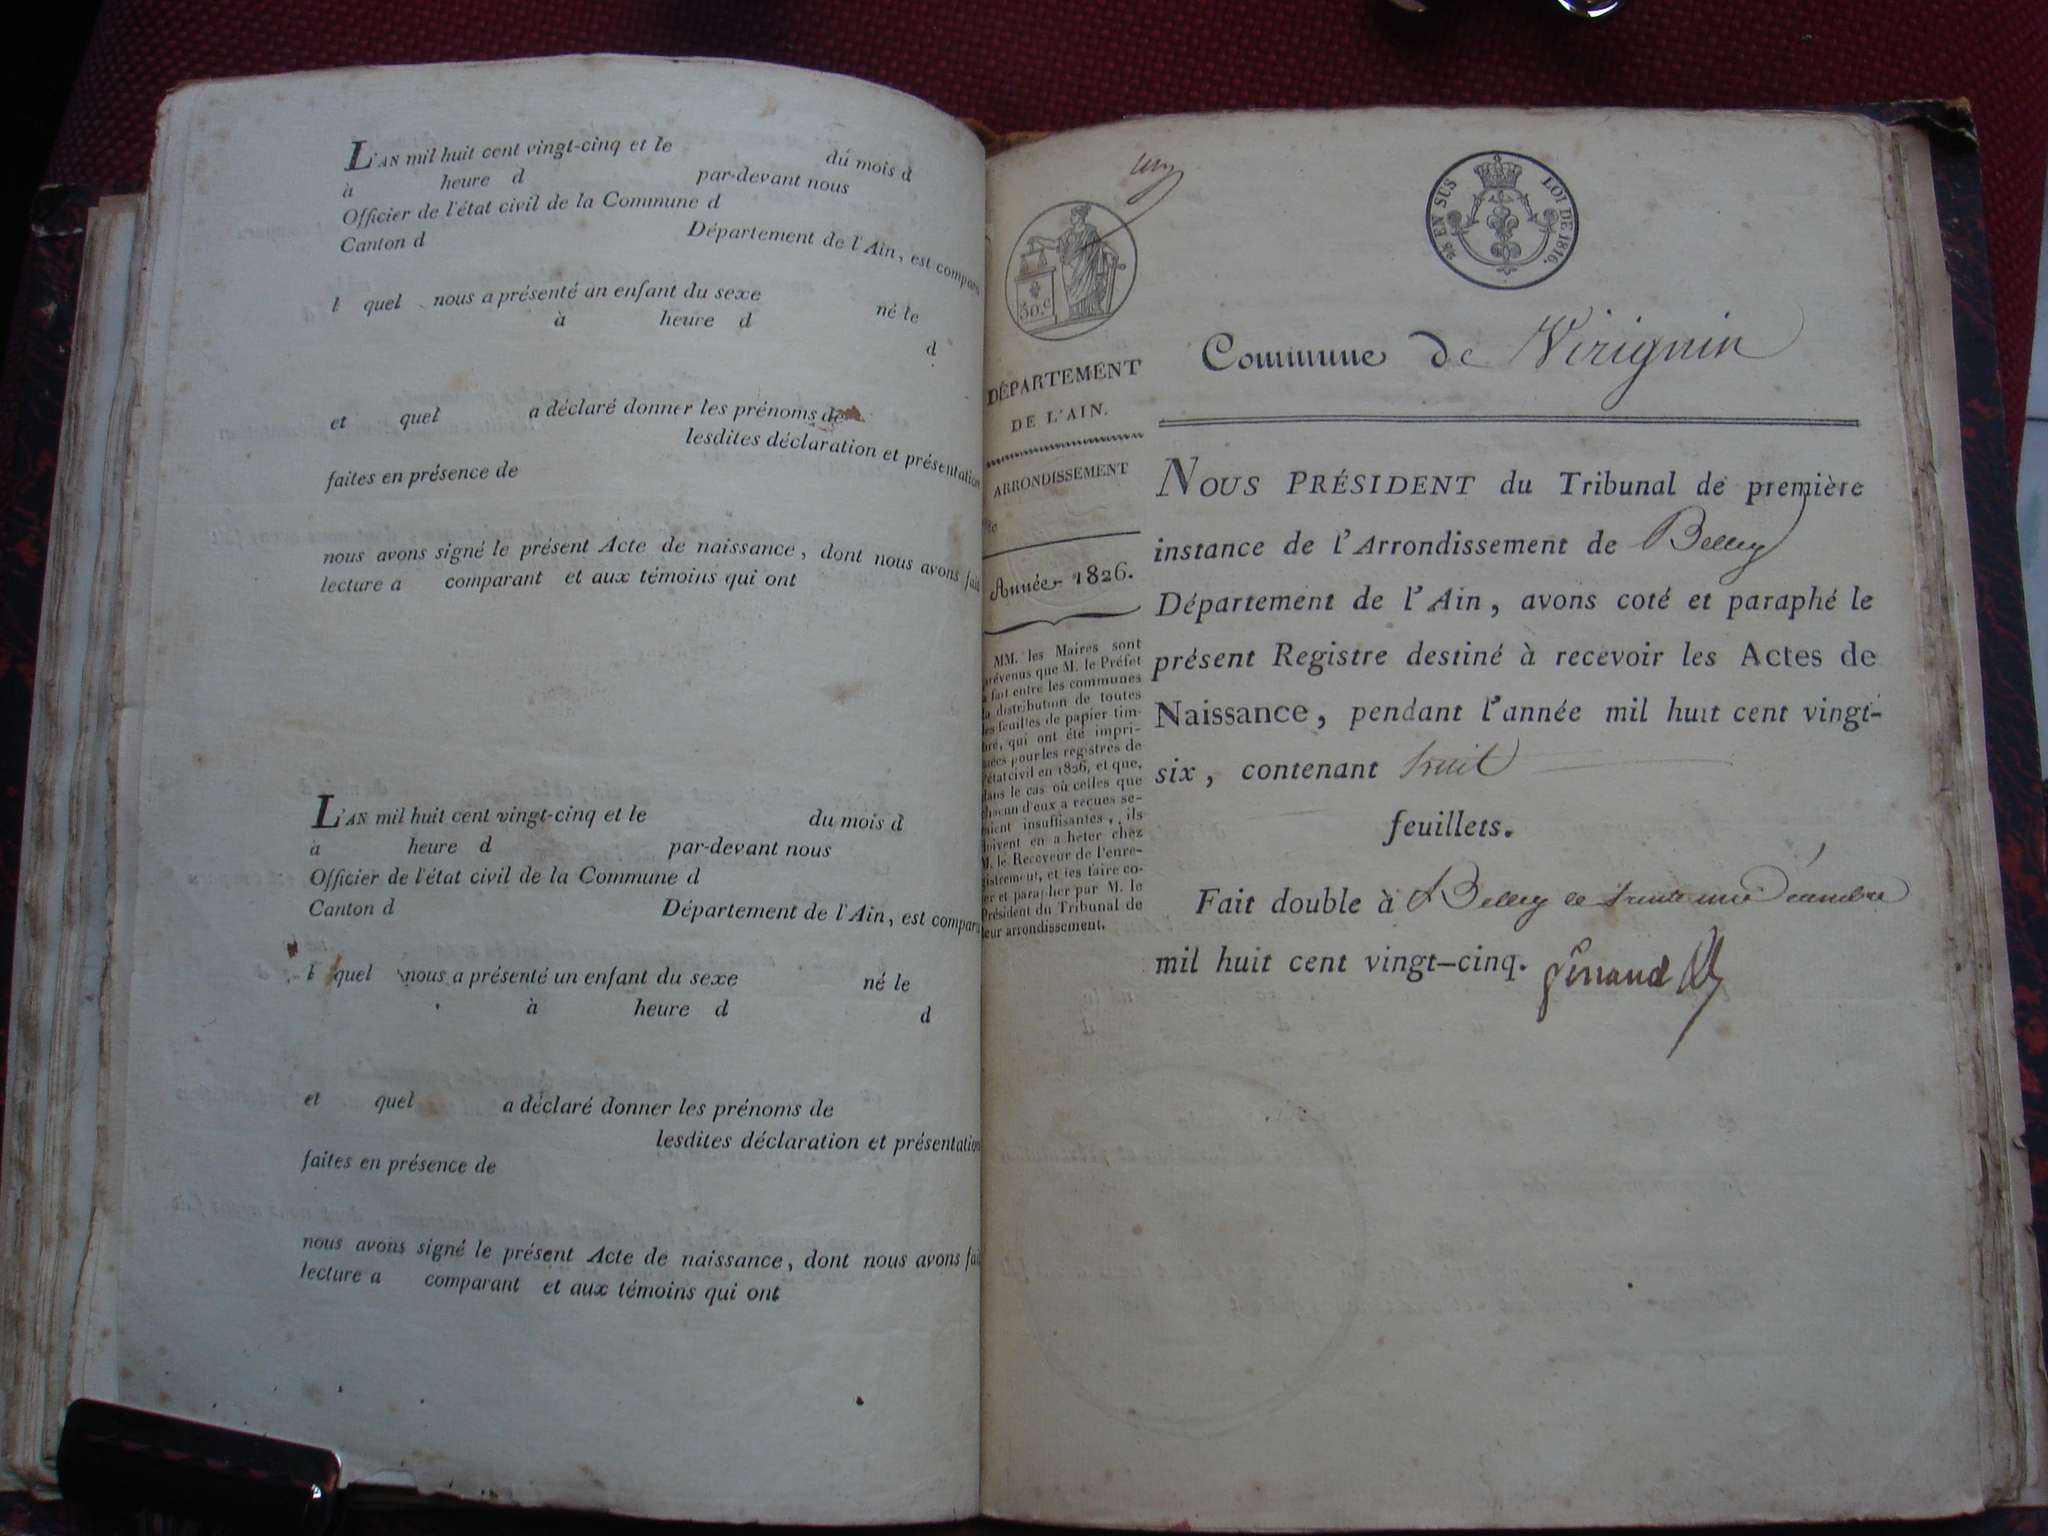 L'AN mil huit cent vingt-cinq et le du mois d
à heure d par-devant nous
Officier de l'état civil de la Commune d
Canton d Département de l'Ain, est comparu
l quel nous a présenté un enfant du sexe né le
à heure d
d
et quel a déclaré donner les prénoms de
lesdites déclaration et présentation
faites en présence de
nous avons signé le présent Acte de naissance, dont nous avons fait
lecture a comparant et aux témoins qui ont
L'AN mil huit cent vingt-cinq et le du mois d
à heure d par-devant nous
Officier de l'état civil de la Commune d
Canton d Département de l'Ain, est comparu
l quel nous a présenté un enfant du sexe né le
à heure d
d
et quel a déclaré donner les prénoms de
lesdites déclaration et présentation
faites en présence de
nous avons signé le présent Acte de naissance, dont nous avons fait
lecture a comparant et aux témoins qui ont
EN SUS LOI DE 1816.
50.c
DÉPARTEMENT
DE L'AIN.
ARRONDISSEMENT
Année 1826.
MM. les Maires sont
prévenus que M. le Préfet
a fait entre les communes
la distribution de toutes
les feuilles de papier tim-
bré, qui ont été impri-
mées pour les registres de
l'état civil en 1826, et que,
dans le cas où celles que
chacun d'eux a reçues se-
raient insuffisantes, ils
doivent en acheter chez
M. le Receveur de l'enre-
gistrement, et les faire co-
ter et parapher par M. le
Président du Tribunal de
leur arrondissement.
Commune de Virignin
NOUS PRÉSIDENT du Tribunal de première
instance de l'Arrondissement de Belley
Département de l'Ain, avons coté et paraphé le
présent Registre destiné à recevoir les Actes de
Naissance, pendant l'année mil huit cent vingt-
six, contenant huit
feuillets.
Fait double à Belley le trente une Décembre
mil huit cent vingt-cinq.